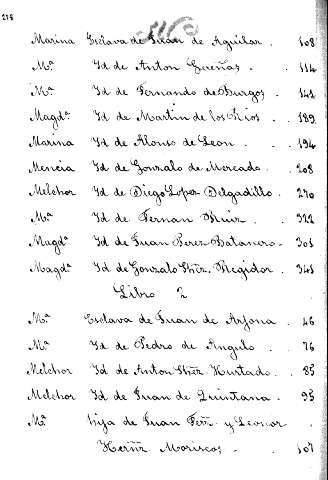 218
Marina Esclava de Juan de Aguilar. 108
Mª. Id de Anton Gueñas. 114
Mª. Id de Fernando de Burgos. 142
Magdª. Id de Martin de los Rios. 189
Marina Id de Alonso de Leon. 194
Mencia Id de Gonzalo de Mercado. 208
Melchor Id de Diego Lopez Delgadillo. 270
Mª. Id de Fernan Ruiz. 322
Magdª. Id de Juan Perez Batanero. 301
Magdª. Id de Gonzalo Regidor. 341
Libro 2
Mª. Esclava de Juan de Arjona. 46
Mª. Id. de Pedro de Angulo. 76
Melchor Id de Anton Hurtado. 85
Melchor Id de Juan de Quintana. 95
Mª. hija de Juan Ferz. y Leonor
Moriscos. 107